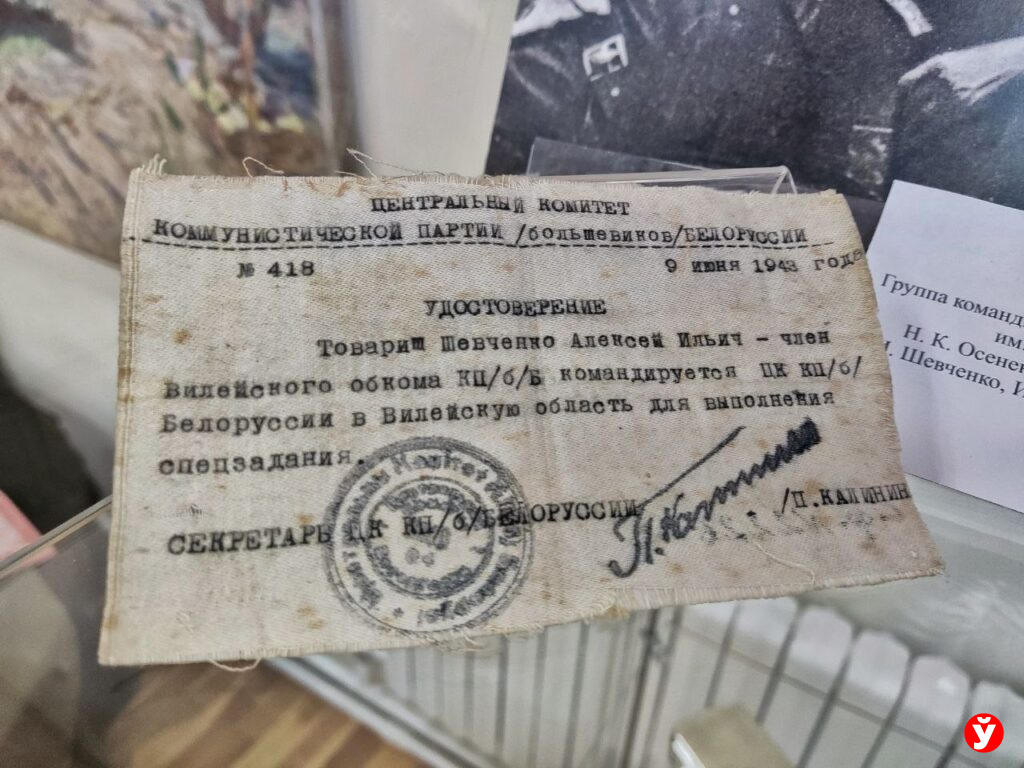 ЦЕНТРАЛЬНЫЙ КОМИТЕТ
КОММУНИСТИЧЕСКОЙ ПАРТИИ /большевиков/БЕЛОРУССИИ
№ 418 9 июня 1943 года
УДОСТОВЕРЕНИЕ
Товарищ Шевченко Алексей Ильич - член
Вилейского обкома КП/б/Б командируется ЦК КП/б/
Белоруссии в Вилейскую область для выполнения
спецзадания.
СЕКРЕТАРЬ ЦК КП/б/БЕЛОРУССИИ
/П.КАЛИНИН
Группа команд
им
Н. К. Осенен
Шевченко, И
Ў